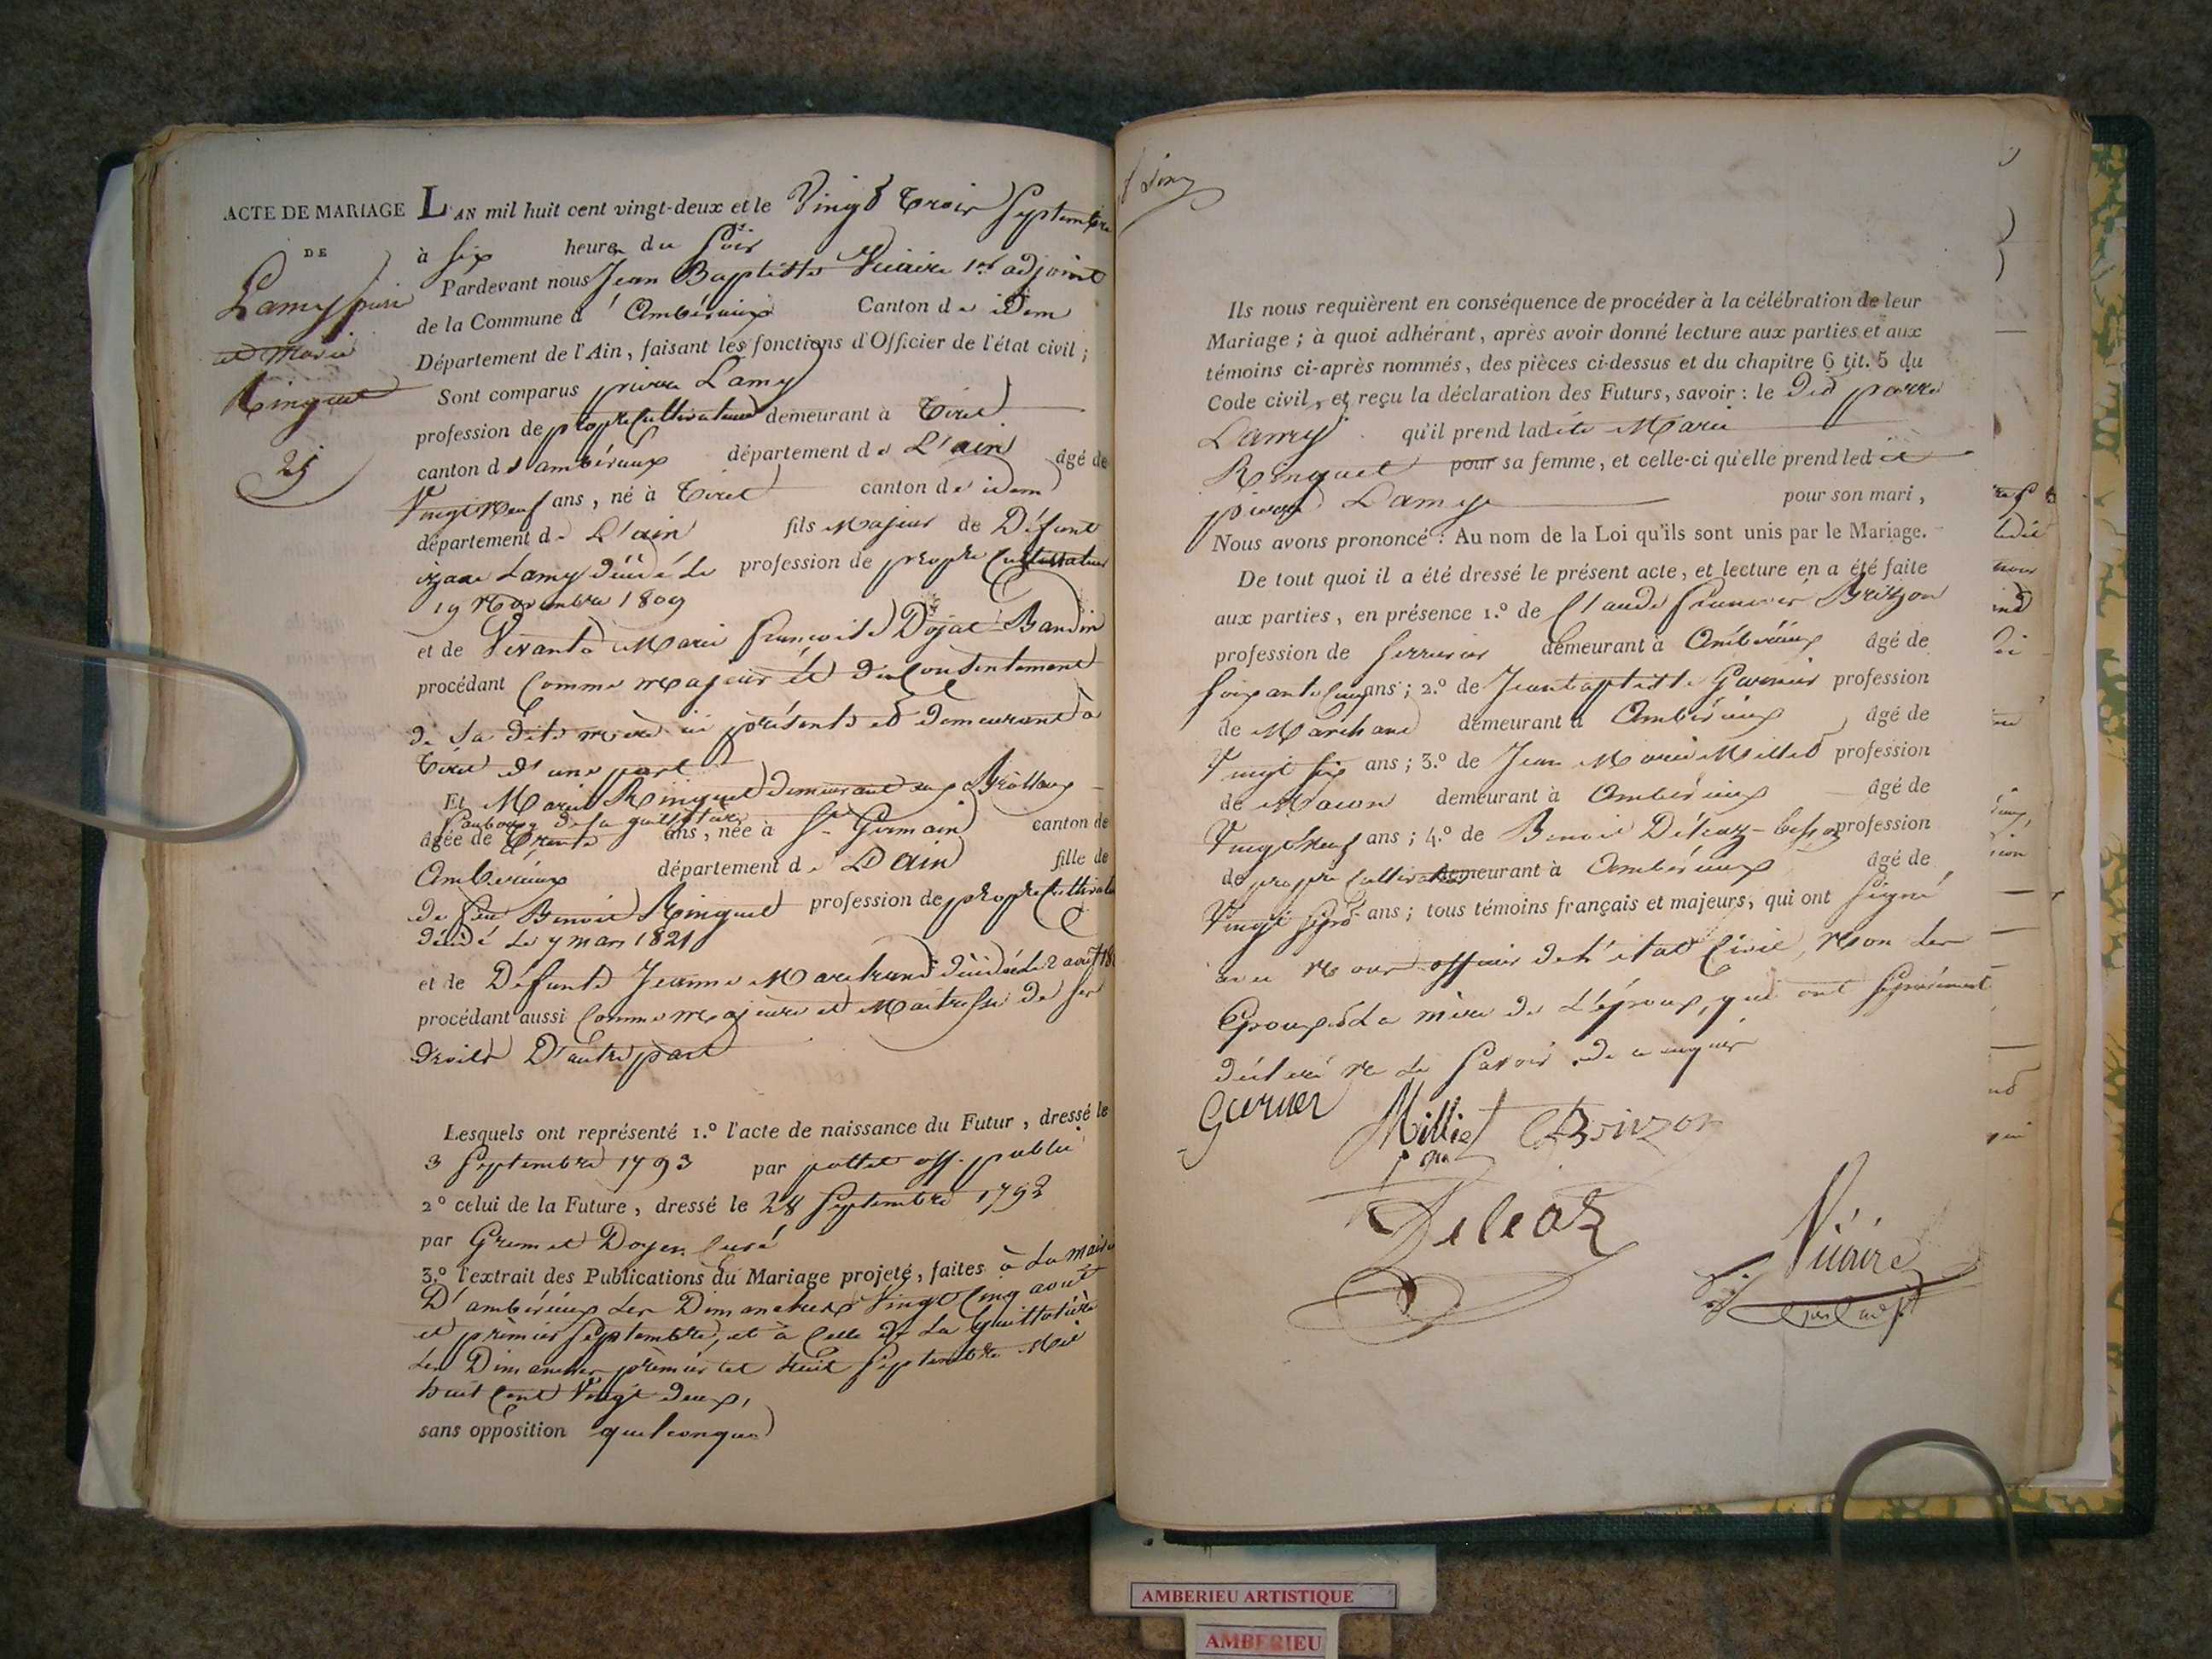 ACTE DE MARIAGE
DE
Lamy pierre
et Marie
Ringuet
25
L'AN mil huit cent vingt-deux et le Vingt trois Septembre
à Six heures du Soir
Pardevant nous Jean Baptiste Vicaire 1er adjoint
de la Commune d'Ambérieux Canton de idem
Département de l'Ain, faisant les fonctions d'Officier de l'état civil ;
Sont comparus pierre Lamy
profession de propre Cultivateur demeurant à Tiret
canton d'ambérieux département de L'ain âgé de
Vingt Neuf ans, né à Tiret canton de idem
département de L'ain fils Majeur de Défunt
izaac Lamy décédé le profession de propre Cultivateur
19 Novembre 1809
et de Vivante Marie françoise Dojat-Bandin
procédant Comme majeur et du Consentement
de Sa dite mère ici présente et demeurant à
Tiret d'une part
Et Marie Ringuet demeurant aux Brottaux
faubourg de la guillotière
âgée de trente ans, née à St Germain canton de
Ambérieux département de L'Ain fille de
de feu Benoit Ringuet profession de propre Cultivateur
décédé le 7 mars 1821
et de Défunte Jeanne Marchand décédée le 2 août 18
procédant aussi Comme majeure et Maitresse de ses
droits D'autre part
Lesquels ont représenté 1.º l'acte de naissance du Futur, dressé le
3 Septembre 1793 par pottet off. public
2º celui de la Future, dressé le 28 Septembre 1792
par Gremet Doyen Curé
3.º l'extrait des Publications du Mariage projeté, faites à La mairie
D'ambérieux les Dimanches Vingt Cinq aout
et prèmier Septembre, et à Celle de La Guillotière
les Dimanches prèmier et huit Septembre Mil
huit Cent Vingt deux,
sans opposition quelconque
Ils nous requièrent en conséquence de procéder à la célébration de leur
Mariage ; à quoi adhérant, après avoir donné lecture aux parties et aux
témoins ci-après nommés, des pièces ci-dessus et du chapitre 6 tit. 5 du
Code civil, et reçu la déclaration des Futurs, savoir : le dit pierre
Lamy qu'il prend ladite Marie
Ringuet pour sa femme, et celle-ci qu'elle prend ledit
pierre Lamy pour son mari,
Nous avons prononcé : Au nom de la Loi qu'ils sont unis par le Mariage.
De tout quoi il a été dressé le présent acte, et lecture en a été faite
aux parties, en présence 1.º de Claude françois Brizon
profession de Serrurier demeurant à Ambérieux âgé de
Soixante Cinq ans ; 2.º de Jean baptiste Garnier profession
de Marchand demeurant à Ambérieux âgé de
Vingt Six ans ; 3.º de Jean Marie Milliet profession
de Macon demeurant à Ambérieux âgé de
Vingt Neuf ans ; 4.º de Benoit Déléaz-besson profession
de propre Cultivateur demeurant à Ambérieux âgé de
Vingt Sept ans ; tous témoins français et majeurs, qui ont Signé
avec Nous officier de L'état Civil, Non les
Epoux et La mère de L'époux, qui ont Séparément
déclaré ne Le Savoir de ce enquis
Garnier Milliet Brizon
Deleaz
Vicaire